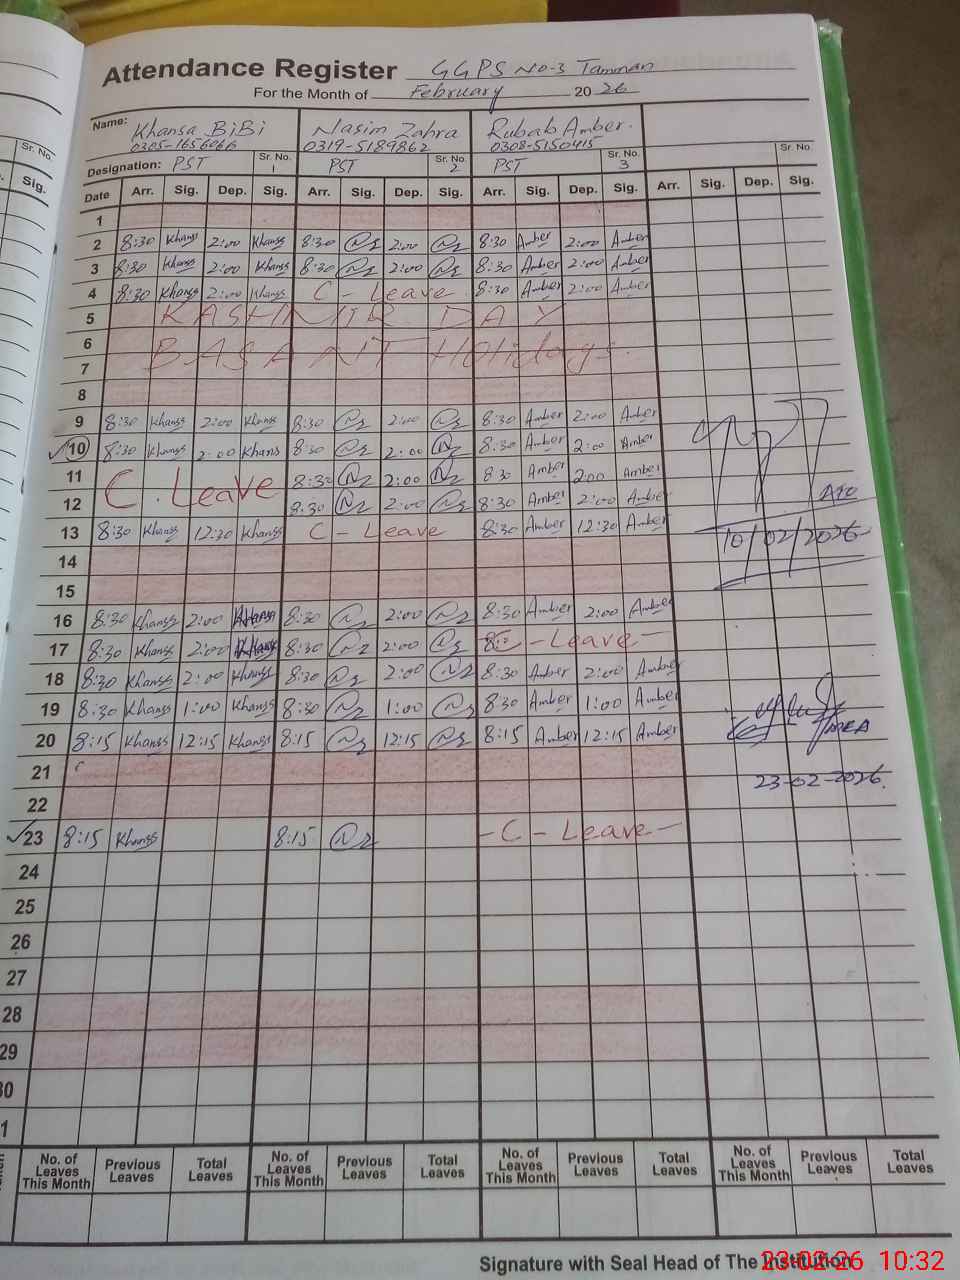 Attendance Register GGPS No-3 Tamman
For the Month of February 2026
Name: Khansa BiBi Nasim Zahra Rubab Amber.
0305-1656066 0319-5189862 0308-5150415
Designation: PST Sr. No. 1 PST Sr. No. 2 PST Sr. No. 3 Sr. No.
Date Arr. Sig. Dep. Sig. Arr. Sig. Dep. Sig. Arr. Sig. Dep. Sig. Arr. Sig. Dep. Sig.
1
2 8:30 Khanss 2:00 Khanss 8:30 Nz 2:00 Nz 8:30 Amber 2:00 Amber
3 8:30 Khanss 2:00 Khanss 8:30 Nz 2:00 Nz 8:30 Amber 2:00 Amber
4 8:30 Khanss 2:00 Khanss C - Leave 8:30 Amber 2:00 Amber
5 KASHMIR DAY
6
7 BASANT Holidays.
8
9 8:30 Khanss 2:00 Khanss 8:30 Nz 2:00 Nz 8:30 Amber 2:00 Amber
10 8:30 Khanss 2:00 Khans 8:30 Nz 2:00 Nz 8:30 Amber 2:00 Amber
11 C. Leave 8:30 Nz 2:00 Nz 8:30 Amber 2:00 Amber
12 8:30 Nz 2:00 Nz 8:30 Amber 2:00 Amber
ATO
13 8:30 Khanss 12:30 Khanss C - Leave 8:30 Amber 12:30 Amber
10/02/2026
14
15
16 8:30 Khanss 2:00 Khanss 8:30 Nz 2:00 Nz 8:30 Amber 2:00 Amber
17 8:30 Khanss 2:00 Khanss 8:30 Nz 2:00 Nz C - Leave -
18 8:30 Khanss 2:00 Khanss 8:30 Nz 2:00 Nz 8:30 Amber 2:00 Amber
19 8:30 Khanss 1:00 Khanss 8:30 Nz 1:00 Nz 8:30 Amber 1:00 Amber
20 8:15 Khanss 12:15 Khanss 8:15 Nz 12:15 Nz 8:15 Amber 12:15 Amber
21
23-02-2026.
22
23 8:15 Khanss 8:15 Nz - C - Leave -
24
25
26
27
28
29
30
1
No. of Leaves This Month Previous Leaves Total Leaves No. of Leaves This Month Previous Leaves Total Leaves No. of Leaves This Month Previous Leaves Total Leaves No. of Leaves This Month Previous Leaves Total Leaves
Signature with Seal Head of The Institution
23-02-26 10:32